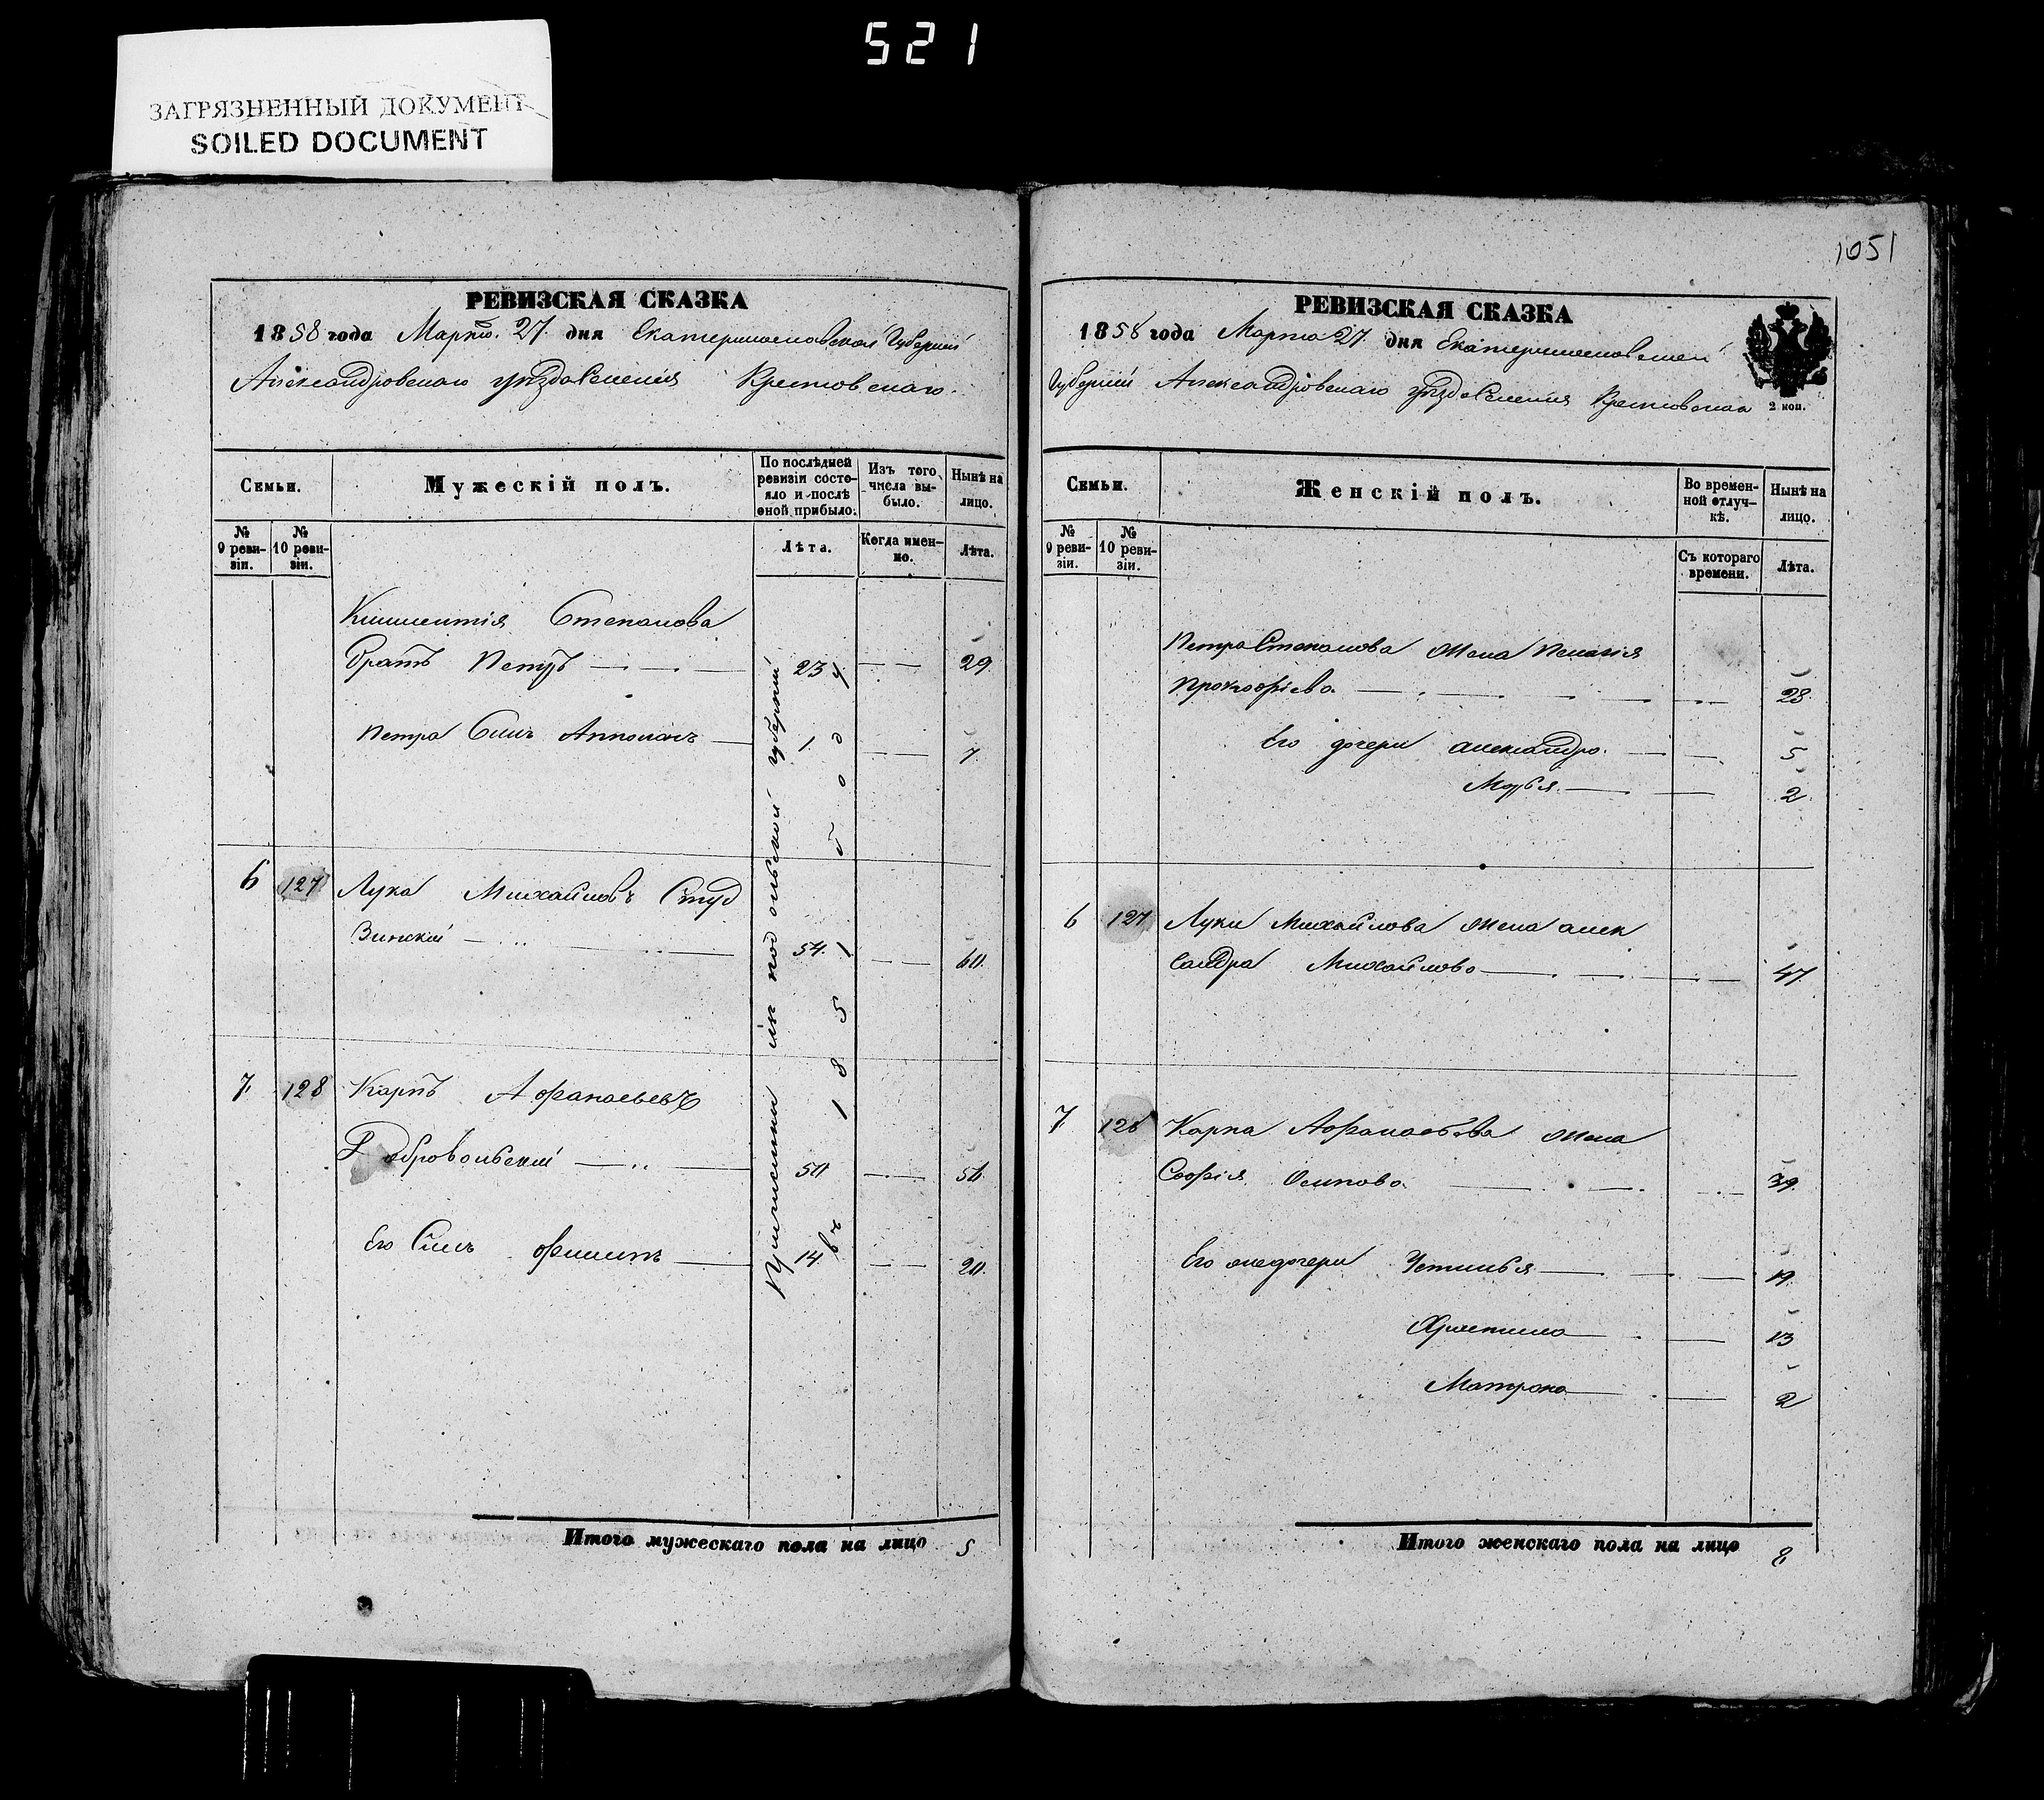 521
ЗАГРЯЗНЕННЫЙ ДОКУМЕНТ
SOILED DOCUMENT
РЕВИЗСКАЯ СКАЗКА
1858 года Марта 27. дня Екатеринославской Губерніи
Александровскаго уѣзда Селенія Кременовскаго
Семьи.
Мужескій полъ.
По послѣдней ревизіи состояло и послѣ оной прибыло.
Изъ того числа выбыло.
Нынѣ на лицо.
№ 9 ревизіи.
№ 10 ревизіи.
Лѣта.
Когда именно.
Лѣта.
Степанова
братъ Петръ 23 29
Петра Сынъ 1 7
6 127 Лука Михайловъ Студ
зинскій 54. 60.
7. 128 Карпъ Афанасьевъ
Добровольскій 50 56.
Его Сынъ Филипъ 14 20.
подольской губерніи
въ 1 8 5 1 году
Итого мужескаго пола на лицо 5
1051
РЕВИЗСКАЯ СКАЗКА
1858 года Марта 27. дня Екатеринославской
Губерніи Александровскаго уѣзда Селенія Кременовскаго
2 коп.
Семьи.
Женскій полъ.
Во временной отлучкѣ.
Нынѣ на лицо.
№ 9 ревизіи.
№ 10 ревизіи.
Съ котораго времени.
Лѣта.
Петра Степанова жена Пелагія
Прокофіева 28.
Его дочери александра 5
Марья 2.
6 127 Луки Михайлова жена алек
сандра Михайлова 47.
7 128 Карпа Афанасьева жена
Софія Осипова 39.
Его же дочери Устинья 19.
Христина 13
Матрона 2
Итого женскаго пола на лицо 8